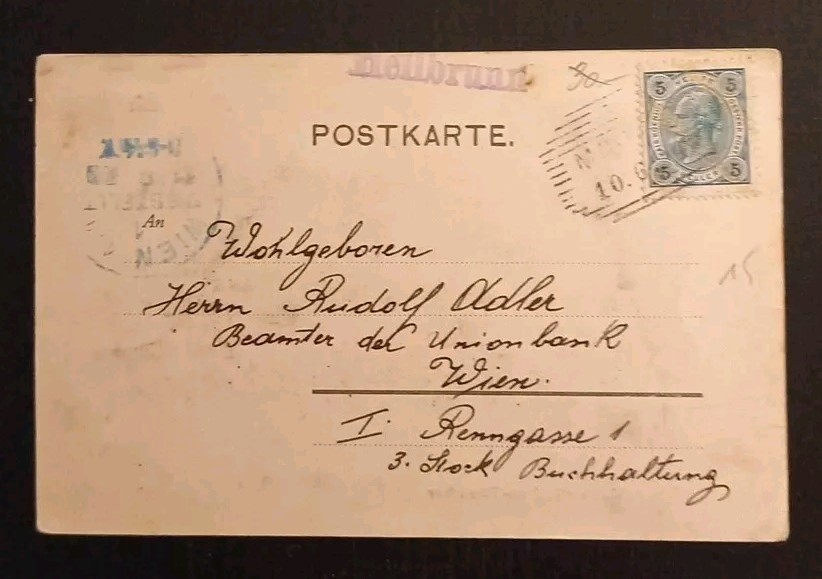 Hellbrunn
POSTKARTE.
5 5
10.6
5 5
WIEN
An
Wohlgeboren
Herrn Rudolf Adler
Beamter der Unionbank
Wien.
I. Renngasse 1
3. Stock Buchhaltung
15